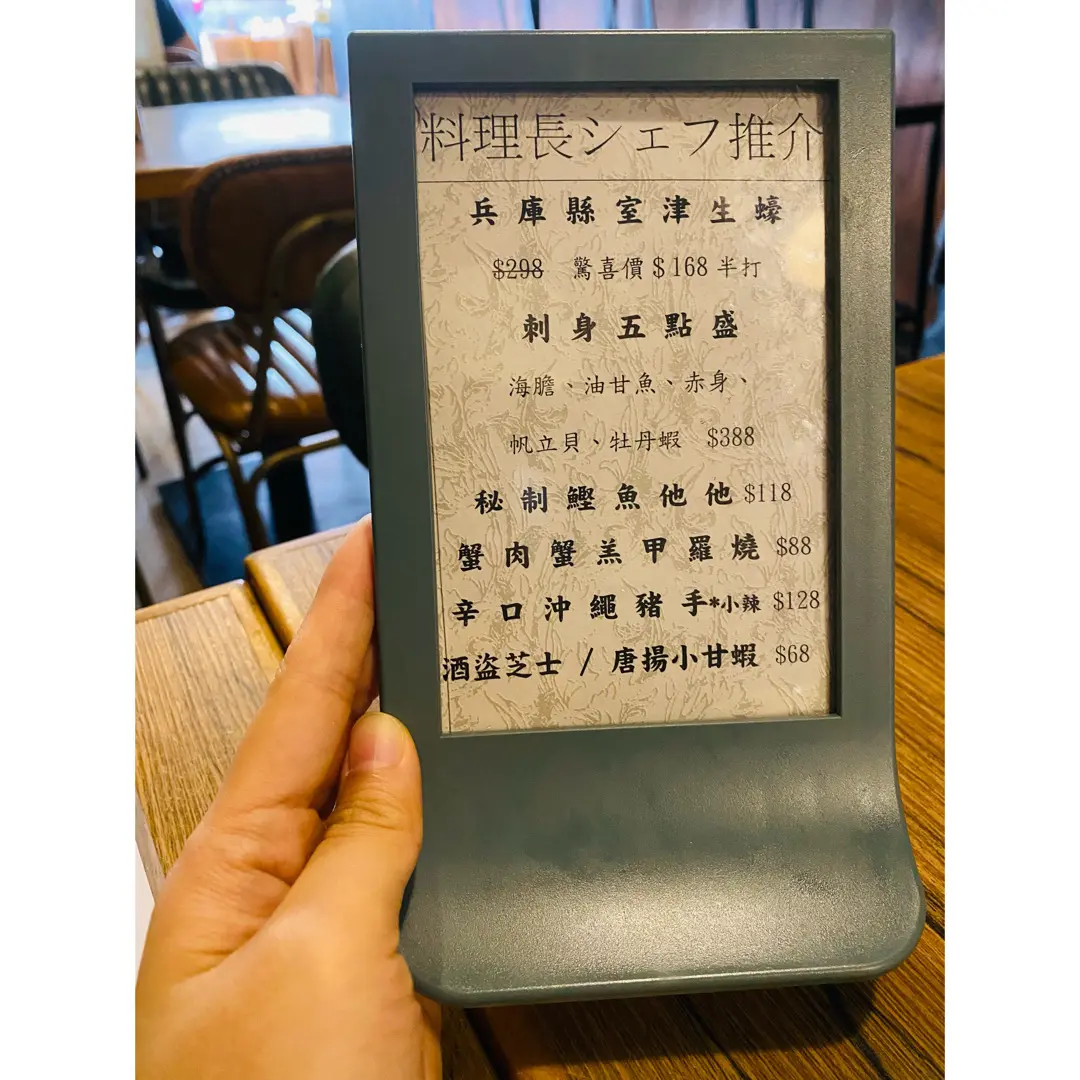 料理長シェフ推介
兵庫縣室津生蠔
$298 驚喜價$168半打
刺身五點盛
海膽、油甘魚、赤身、
帆立貝、牡丹蝦 $388
秘制鰹魚他他$118
蟹肉蟹羔甲羅燒 $88
辛口沖繩豬手*小辣 $128
酒盜芝士 / 唐揚小甘蝦 $68